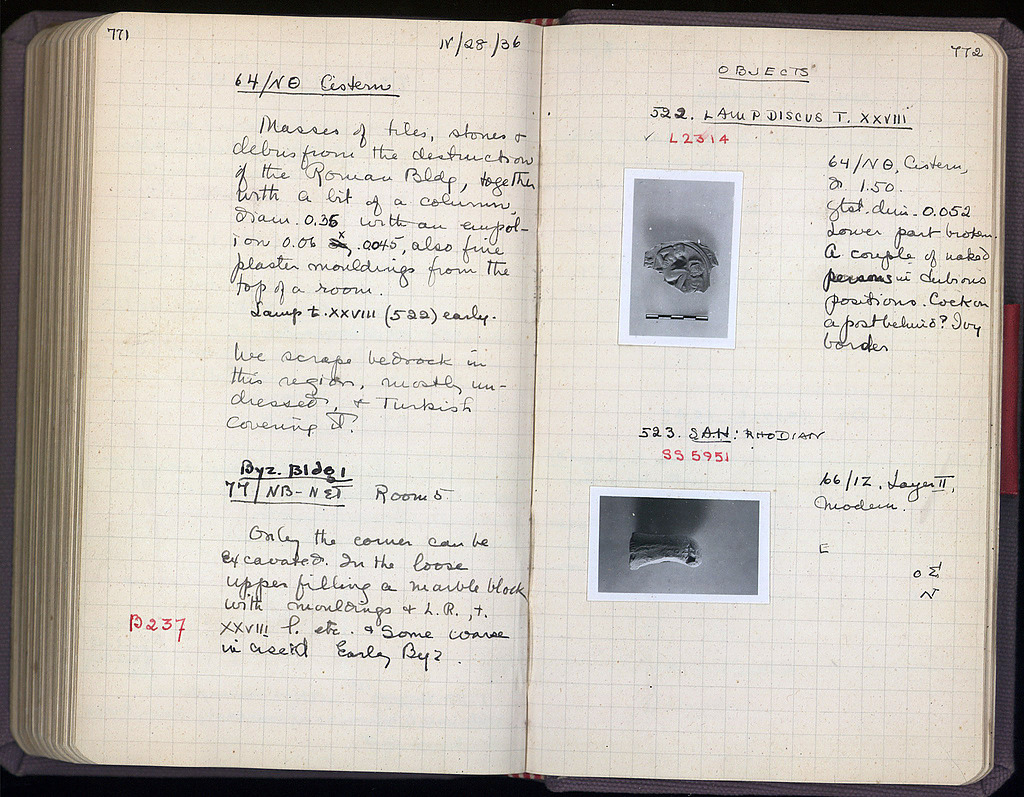 771
IV/28/36
64/ΝΘ Cistern
Masses of tiles, stones &
debris from the destruction
of the Roman Bldg, together
with a bit of a column,
diam. 0.35 with an empol-
ion 0.06 x .045, also fine
plaster mouldings from the
top of a room.
Lamp t. XXVIII (522) early.
We scrape bedrock in
this region, mostly un-
dressed, & Turkish
covering it.
Byz. Bldg 1
77/ΝΒ-ΝΣΤ Room 5
Only the corner can be
excavated. In the loose
upper filling a marble block
with mouldings & L.R., t.
XXVIII l. etc. & some coarse
incised Early Byz.
B237
772
OBJECTS
522. LAMP DISCUS T. XXVIII
✓ L2314
64/ΝΘ, Cistern,
d 1.50.
Gtst. dim. 0.052
Lower part broken.
A couple of naked
persons in dubious
positions. Cock on
a post behind? Ivy
border
523. SAH: RHODIAN
SS 5951
66/ΙΖ, Layer II,
Modern.
Ε
ο Σ
Ν